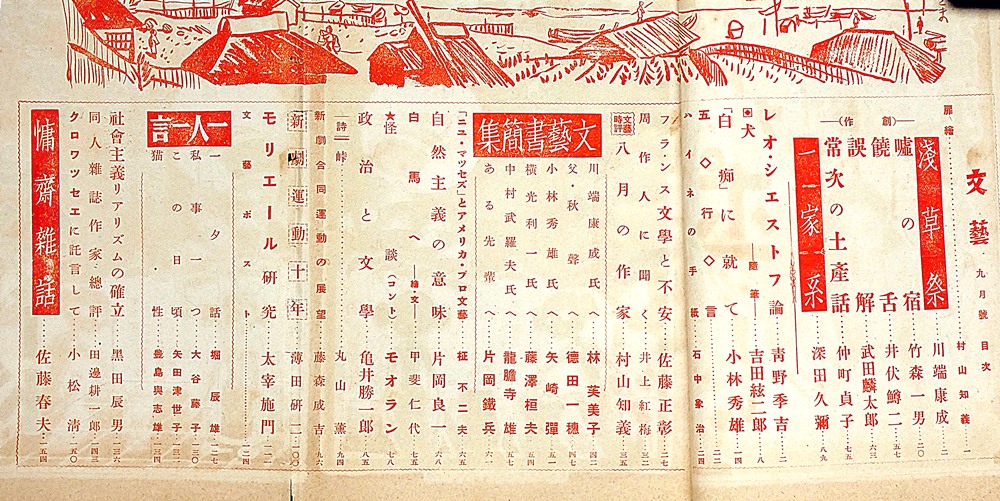 文藝・九月號 目次
扉繪……村山知義…一
淺草祭……川端康成…二
―(創作)―
噓の宿……竹森一男…二〇
饒舌……井伏鱒二…五二
誤解……武田麟太郎…六三
常次の土產話……仲町貞子…七五
一家系……深田久彌…八九
レオ・シエストフ論……靑野季吉…二
◙犬―隨筆―……吉田絃二郎…八
「白痴」に就て……小林秀雄…一四
五◇行◇言……二二
ハイネの手紙……石中象治…二四
フランス文學と不安……佐藤正彰…二七
周作人に聞く……井上紅梅
文藝時評
八月の作家……村山知義…三五
文藝書簡集
川端康成氏へ……林芙美子…四二
父・秋聲へ……德田一穗…四七
小林秀雄氏へ……矢崎彈…五一
橫光利一氏へ……藤澤桓夫…五四
中村武羅夫氏へ……龍膽寺雄…五七
ある先輩へ……片岡鐵兵…六〇
「ニユ・マツセズ」とアメリカ・プロ文藝……柾不二夫
自然主義の意味……片岡良一…六八
白馬へ―繪・文―……甲斐仁代
★怪談(コント)……モオラン…七八
政治と文學……亀井勝一郎…八五
詩 峠……丸山薰…九四
新劇合同運動の展望……藤森成吉…九六
新劇運動十年……薄田研二…一〇〇
モリエール硏究……太宰施門…一一二
文藝ポスト……二四
一人一言
一夕話……堀辰雄…一二七
私事一つ……大谷藤子…一三〇
この日頃……矢田津世子…一三二
猫・性……豊島與志雄…一三四
社會主義リアリズムの確立……黑田辰男…一三六
同人雜誌作家總評……田邊耕一郎…一四三
クロワツセエに託言して……小松淸…一五〇
慵齋雜話……佐藤春夫…一五四